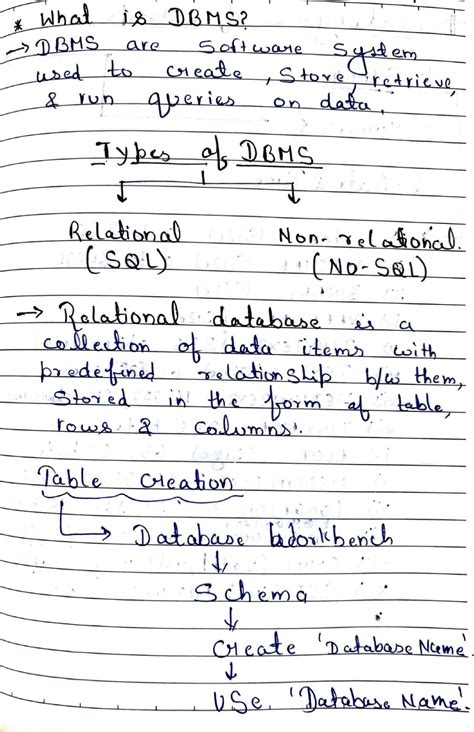 * What is DBMS?
→ DBMS are software system
used to create, store, retrieve,
& run queries on data.
Types of DBMS
Relational Non-relational.
(SQL) (NO-SQL)
→ Relational database is a
collection of data items with
predefined relationship b/w them,
stored in the form of table,
rows & columns.
Table creation
→ Database Workbench
↓
Schema
↓
Create 'Database Name'.
↓
USe 'Database Name'.